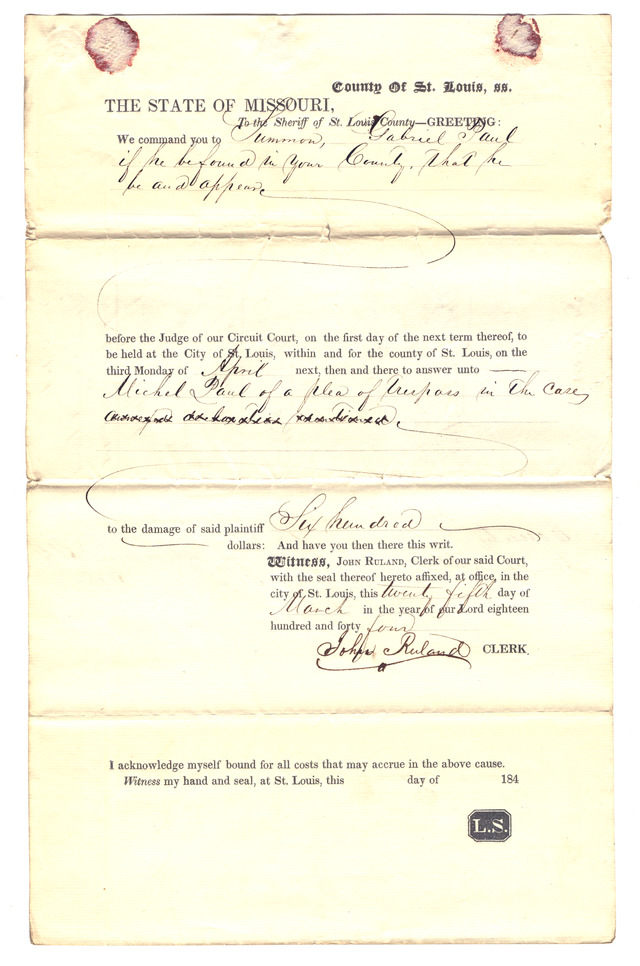 County Of St. Louis, ss.
THE STATE OF MISSOURI,
To the Sheriff of St. Louis County—GREETING:
We command you to Summon, Gabriel Paul
if he be found in your County, that he
be and appear
before the Judge of our Circuit Court, on the first day of the next term thereof, to
be held at the City of St. Louis, within and for the county of St. Louis, on the
third Monday of April next, then and there to answer unto —
Michel Paul of a plea of trespass in the case,
to the damage of said plaintiff Six hundred
dollars: And have you then there this writ.
Witness, JOHN RULAND, Clerk of our said Court,
with the seal thereof hereto affixed, at office, in the
city of St. Louis, this twenty fifth day of
March in the year of our Lord eighteen
hundred and forty four
John Ruland CLERK.
I acknowledge myself bound for all costs that may accrue in the above cause.
Witness my hand and seal, at St. Louis, this day of 184
L.S.